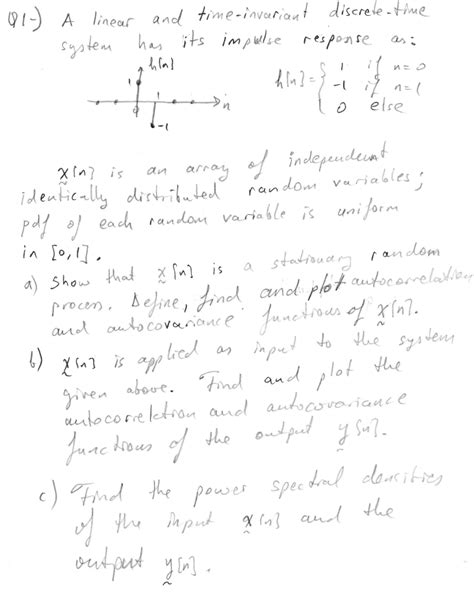 Q1-) A linear and time-invariant discrete-time
system has its impulse response as:
h[n]
1
1
n
0
-1
h[n] = { 1 if n=0
-1 if n=1
0 else
x[n] is an array of independent
identically distributed random variables;
pdf of each random variable is uniform
in [0,1].
a) Show that x[n] is a stationary random
process. Define, find and plot autocorrelation
and autocovariance functions of x[n].
b) x[n] is applied as input to the system
given above. Find and plot the
autocorrelation and autocovariance
functions of the output y[n].
c) Find the power spectral densities
of the input x[n] and the
output y[n].